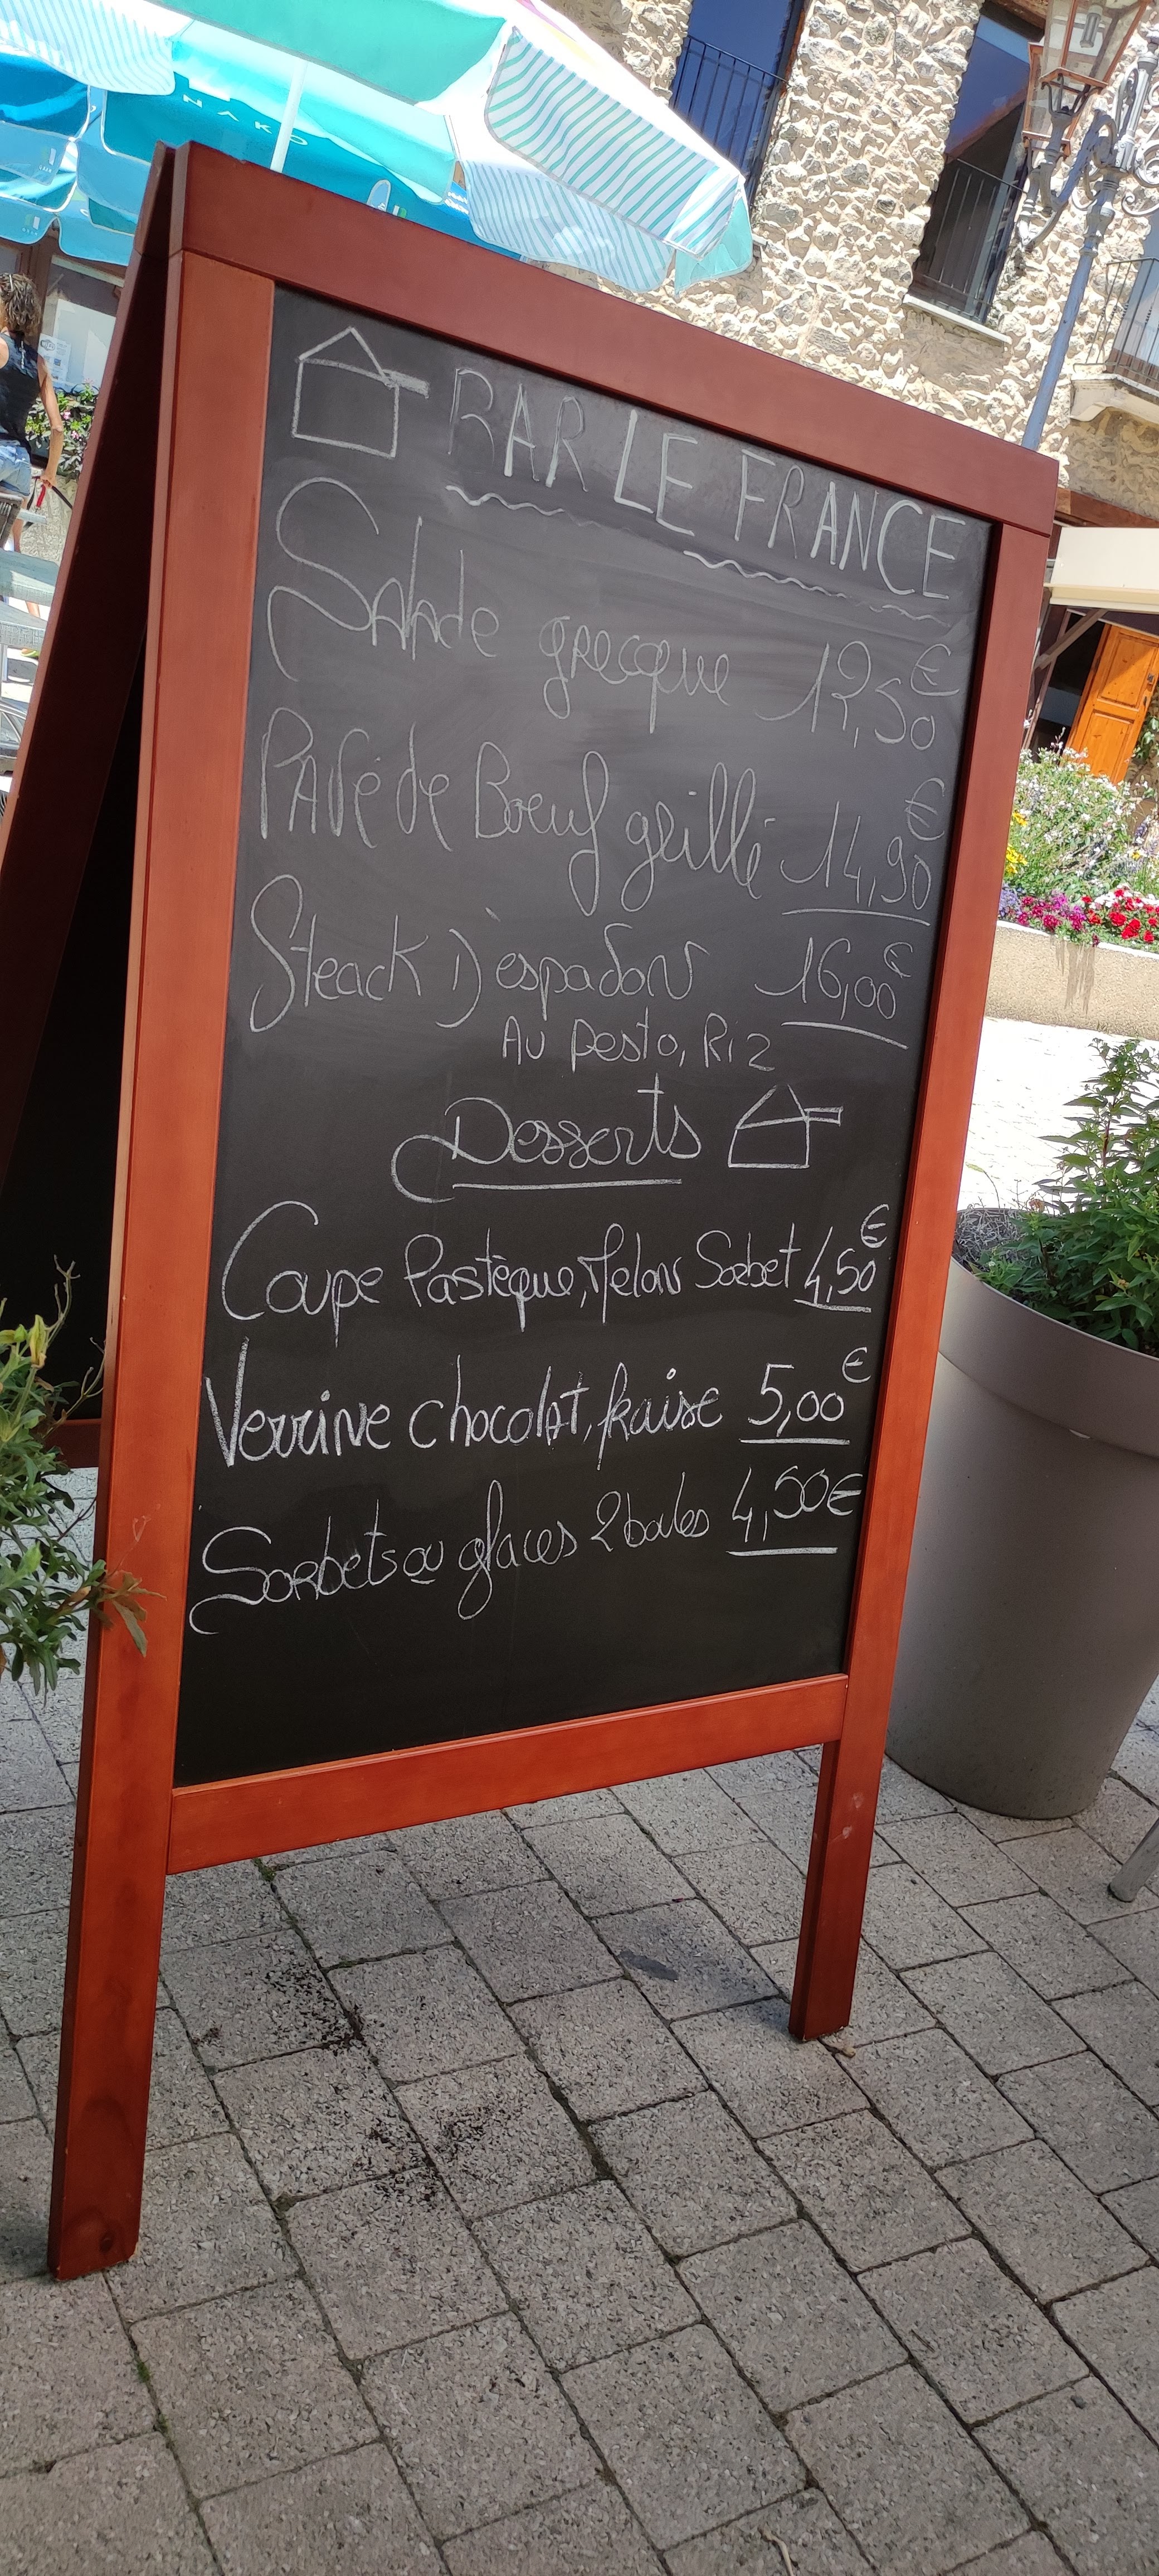 NAKO
BAR LE FRANCE
Salade grecque 12,50€
Pavé de Boeuf grillé 14,90€
Steack D'espadon 16,00€
Au pesto, Riz
Desserts
Coupe Pastèque, Melon Sorbet 4,50€
Verrine chocolat, fraise 5,00€
Sorbets ou glaces 2 boules 4,50€